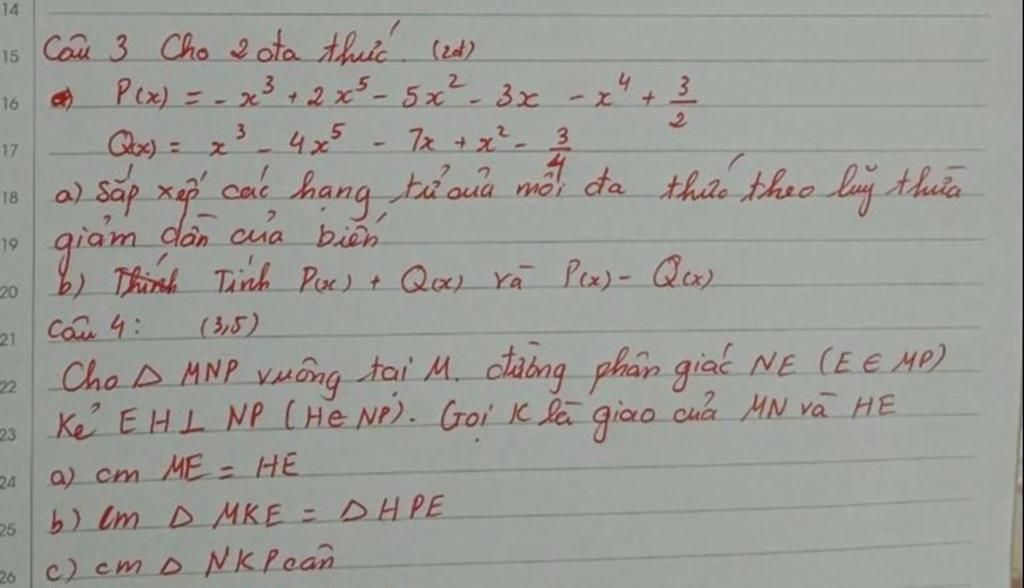 14
15 Câu 3 Cho 2 đa thức. (2đ)
16 P(x) = - x³ + 2x⁵ - 5x² - 3x - x⁴ + 3/2
17 Q(x) = x³ - 4x⁵ - 7x + x² - 3/4
18 a) Sắp xếp các hạng tử của mỗi đa thức theo luỹ thừa
19 giảm dần của biến
20 b) Tính P(x) + Q(x) và P(x) - Q(x)
21 Câu 4: (3,5)
22 Cho Δ MNP vuông tại M. đường phân giác NE (E ∈ MP)
23 Kẻ EH ⊥ NP (H ∈ NP). Gọi K là giao của MN và HE
24 a) cm ME = HE
25 b) cm Δ MKE = Δ HPE
26 c) cm Δ NKP cân